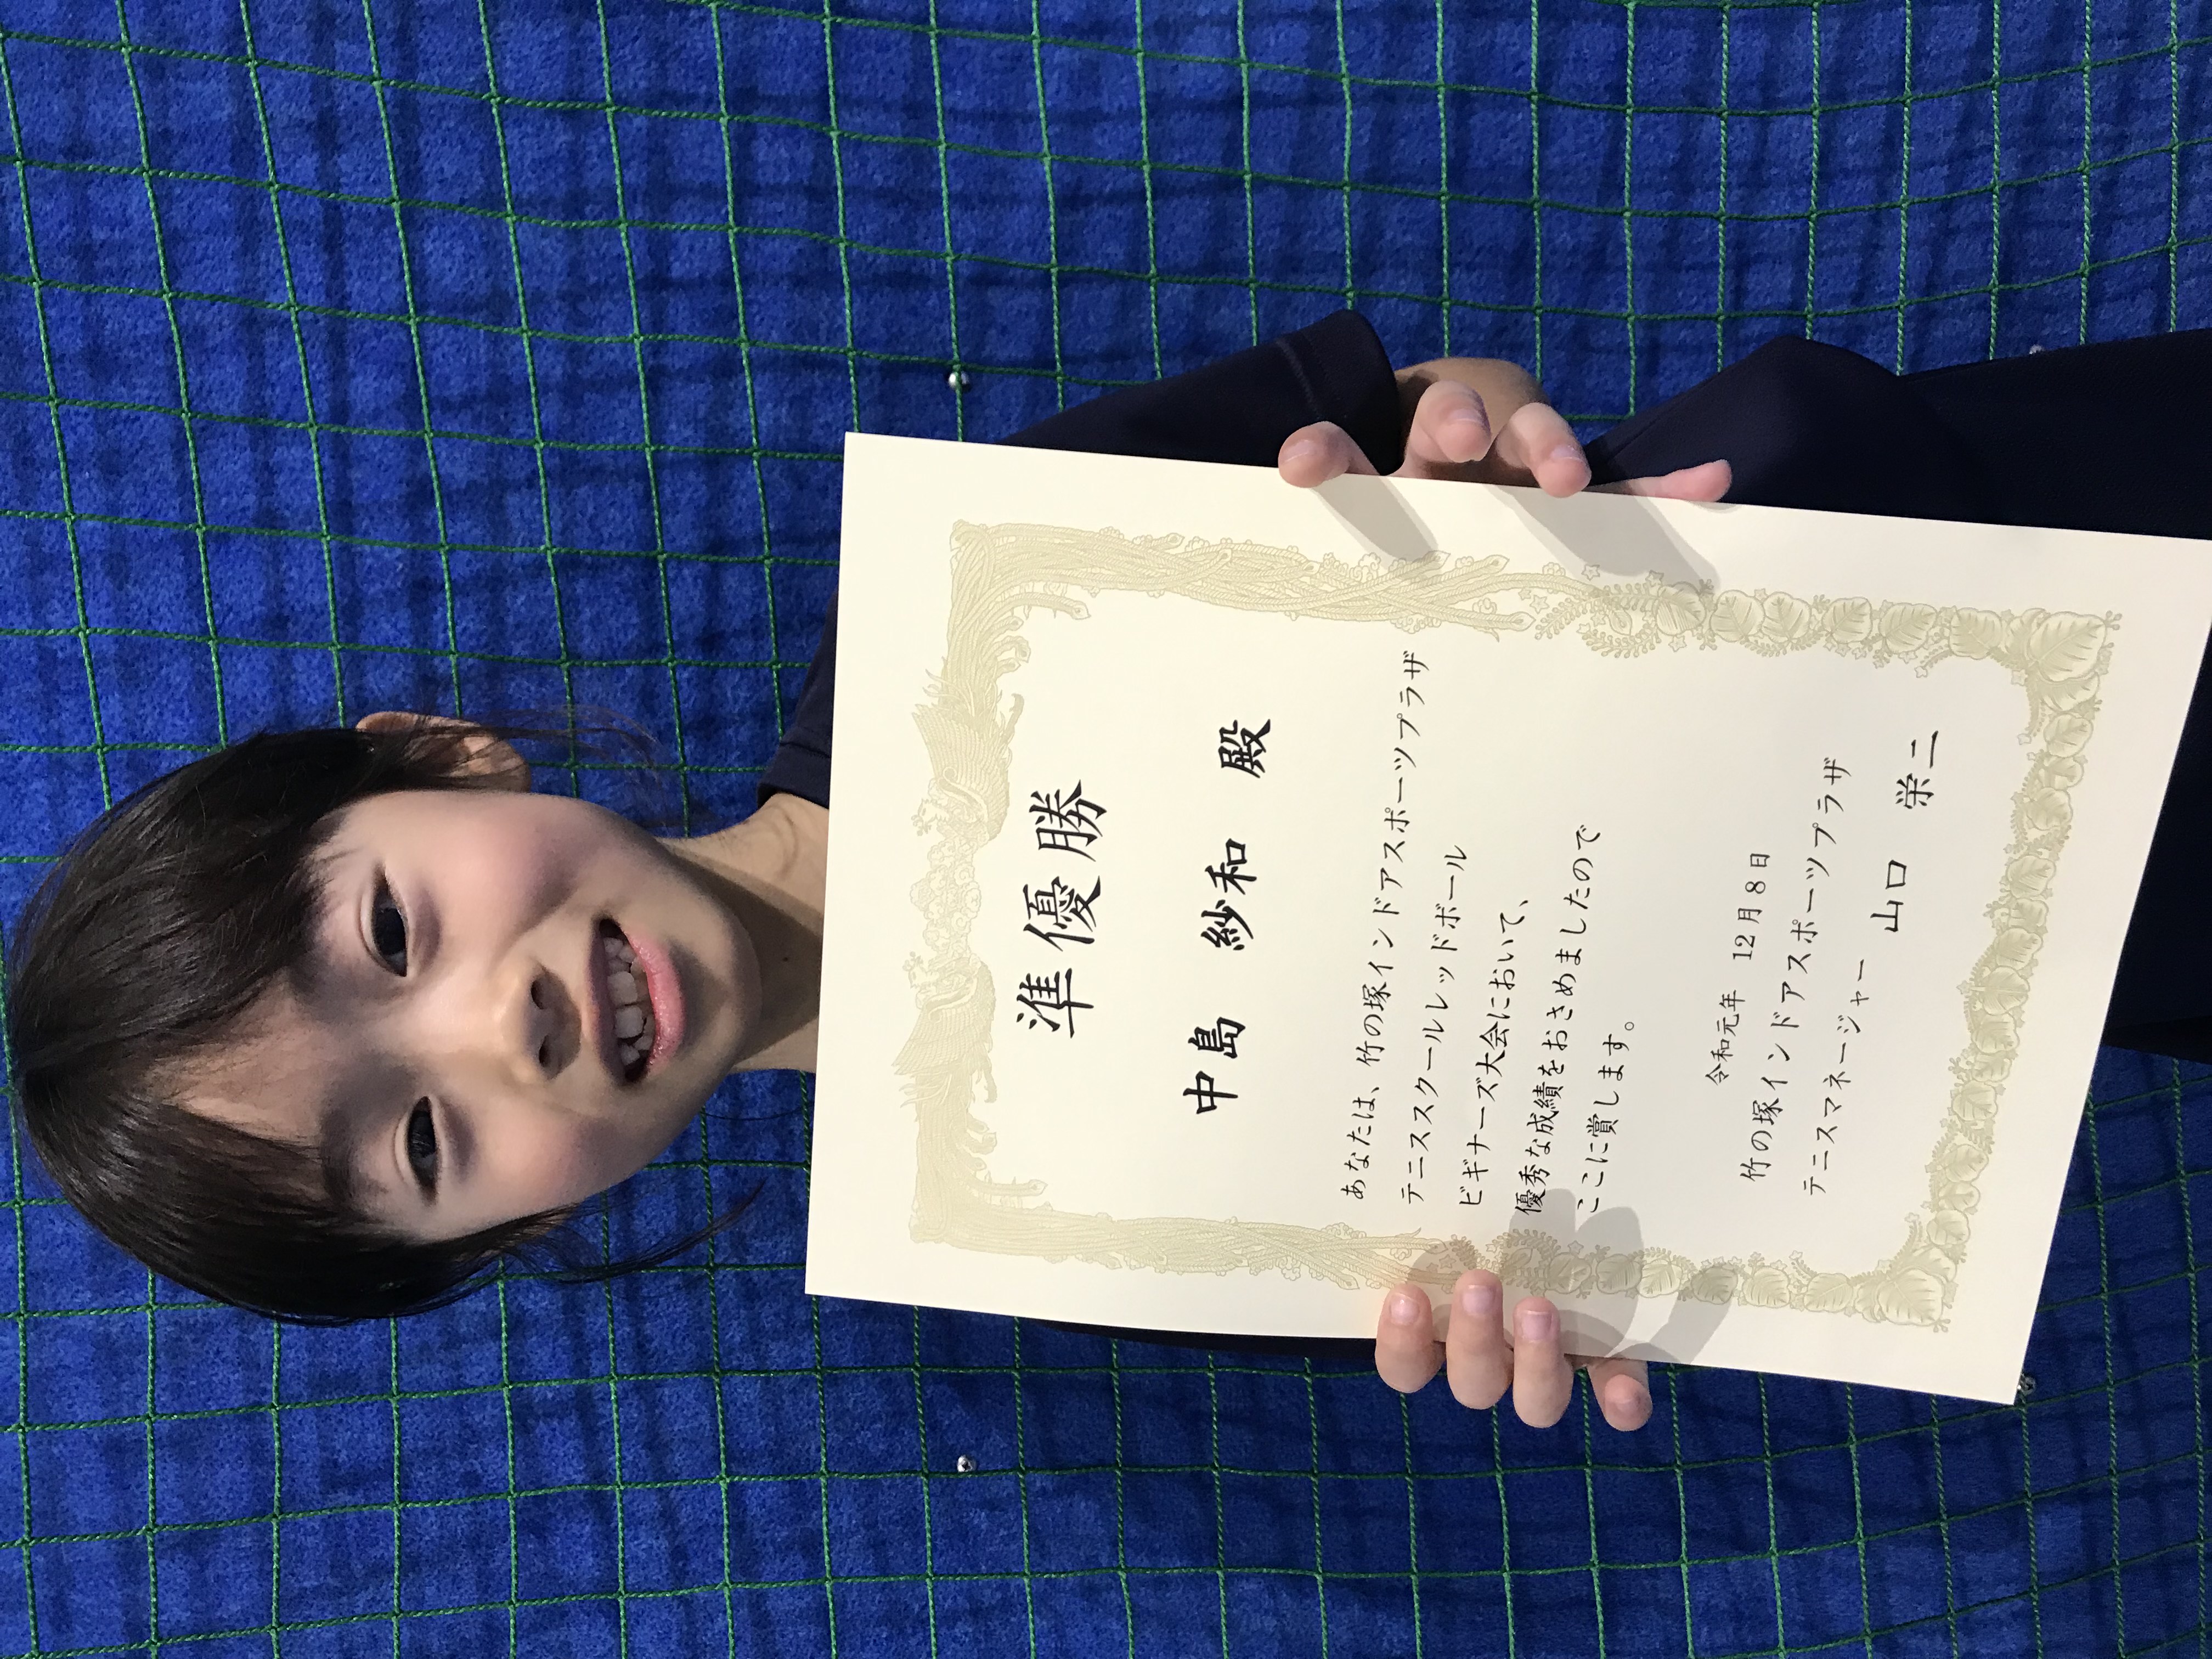 準優勝
中島 紗和 殿
あなたは、竹の塚インドアスポーツプラザ
テニススクールレッドボール
ビギナーズ大会において、
優秀な成績をおさめましたので
ここに賞します。
令和元年 12月8日
竹の塚インドアスポーツプラザ
テニスマネージャー 山口 栄二